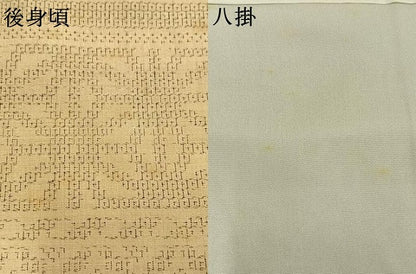 後身頃
八掛